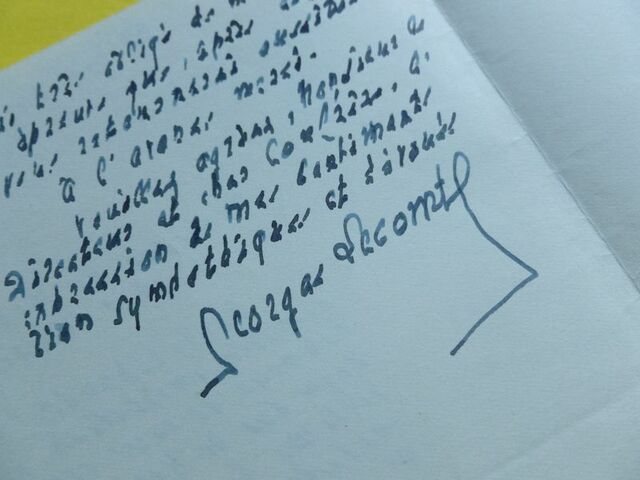 très
épreuve que après
vous retournerai ensuite
à l'avance merci.
Veuillez agréer, Monsieur le
Directeur et cher Confrère, l'
expression de mes sentiments
bien sympathiques et dévoués
Georges Lecomte